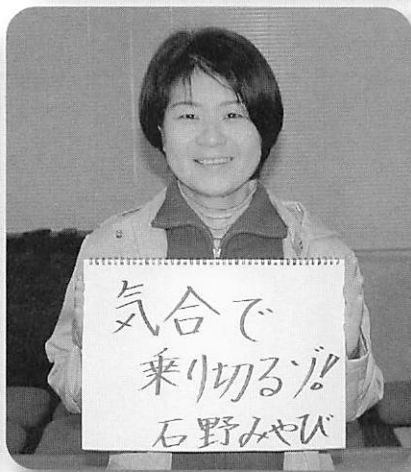 気合で
乗り切るゾ!
石野みやび